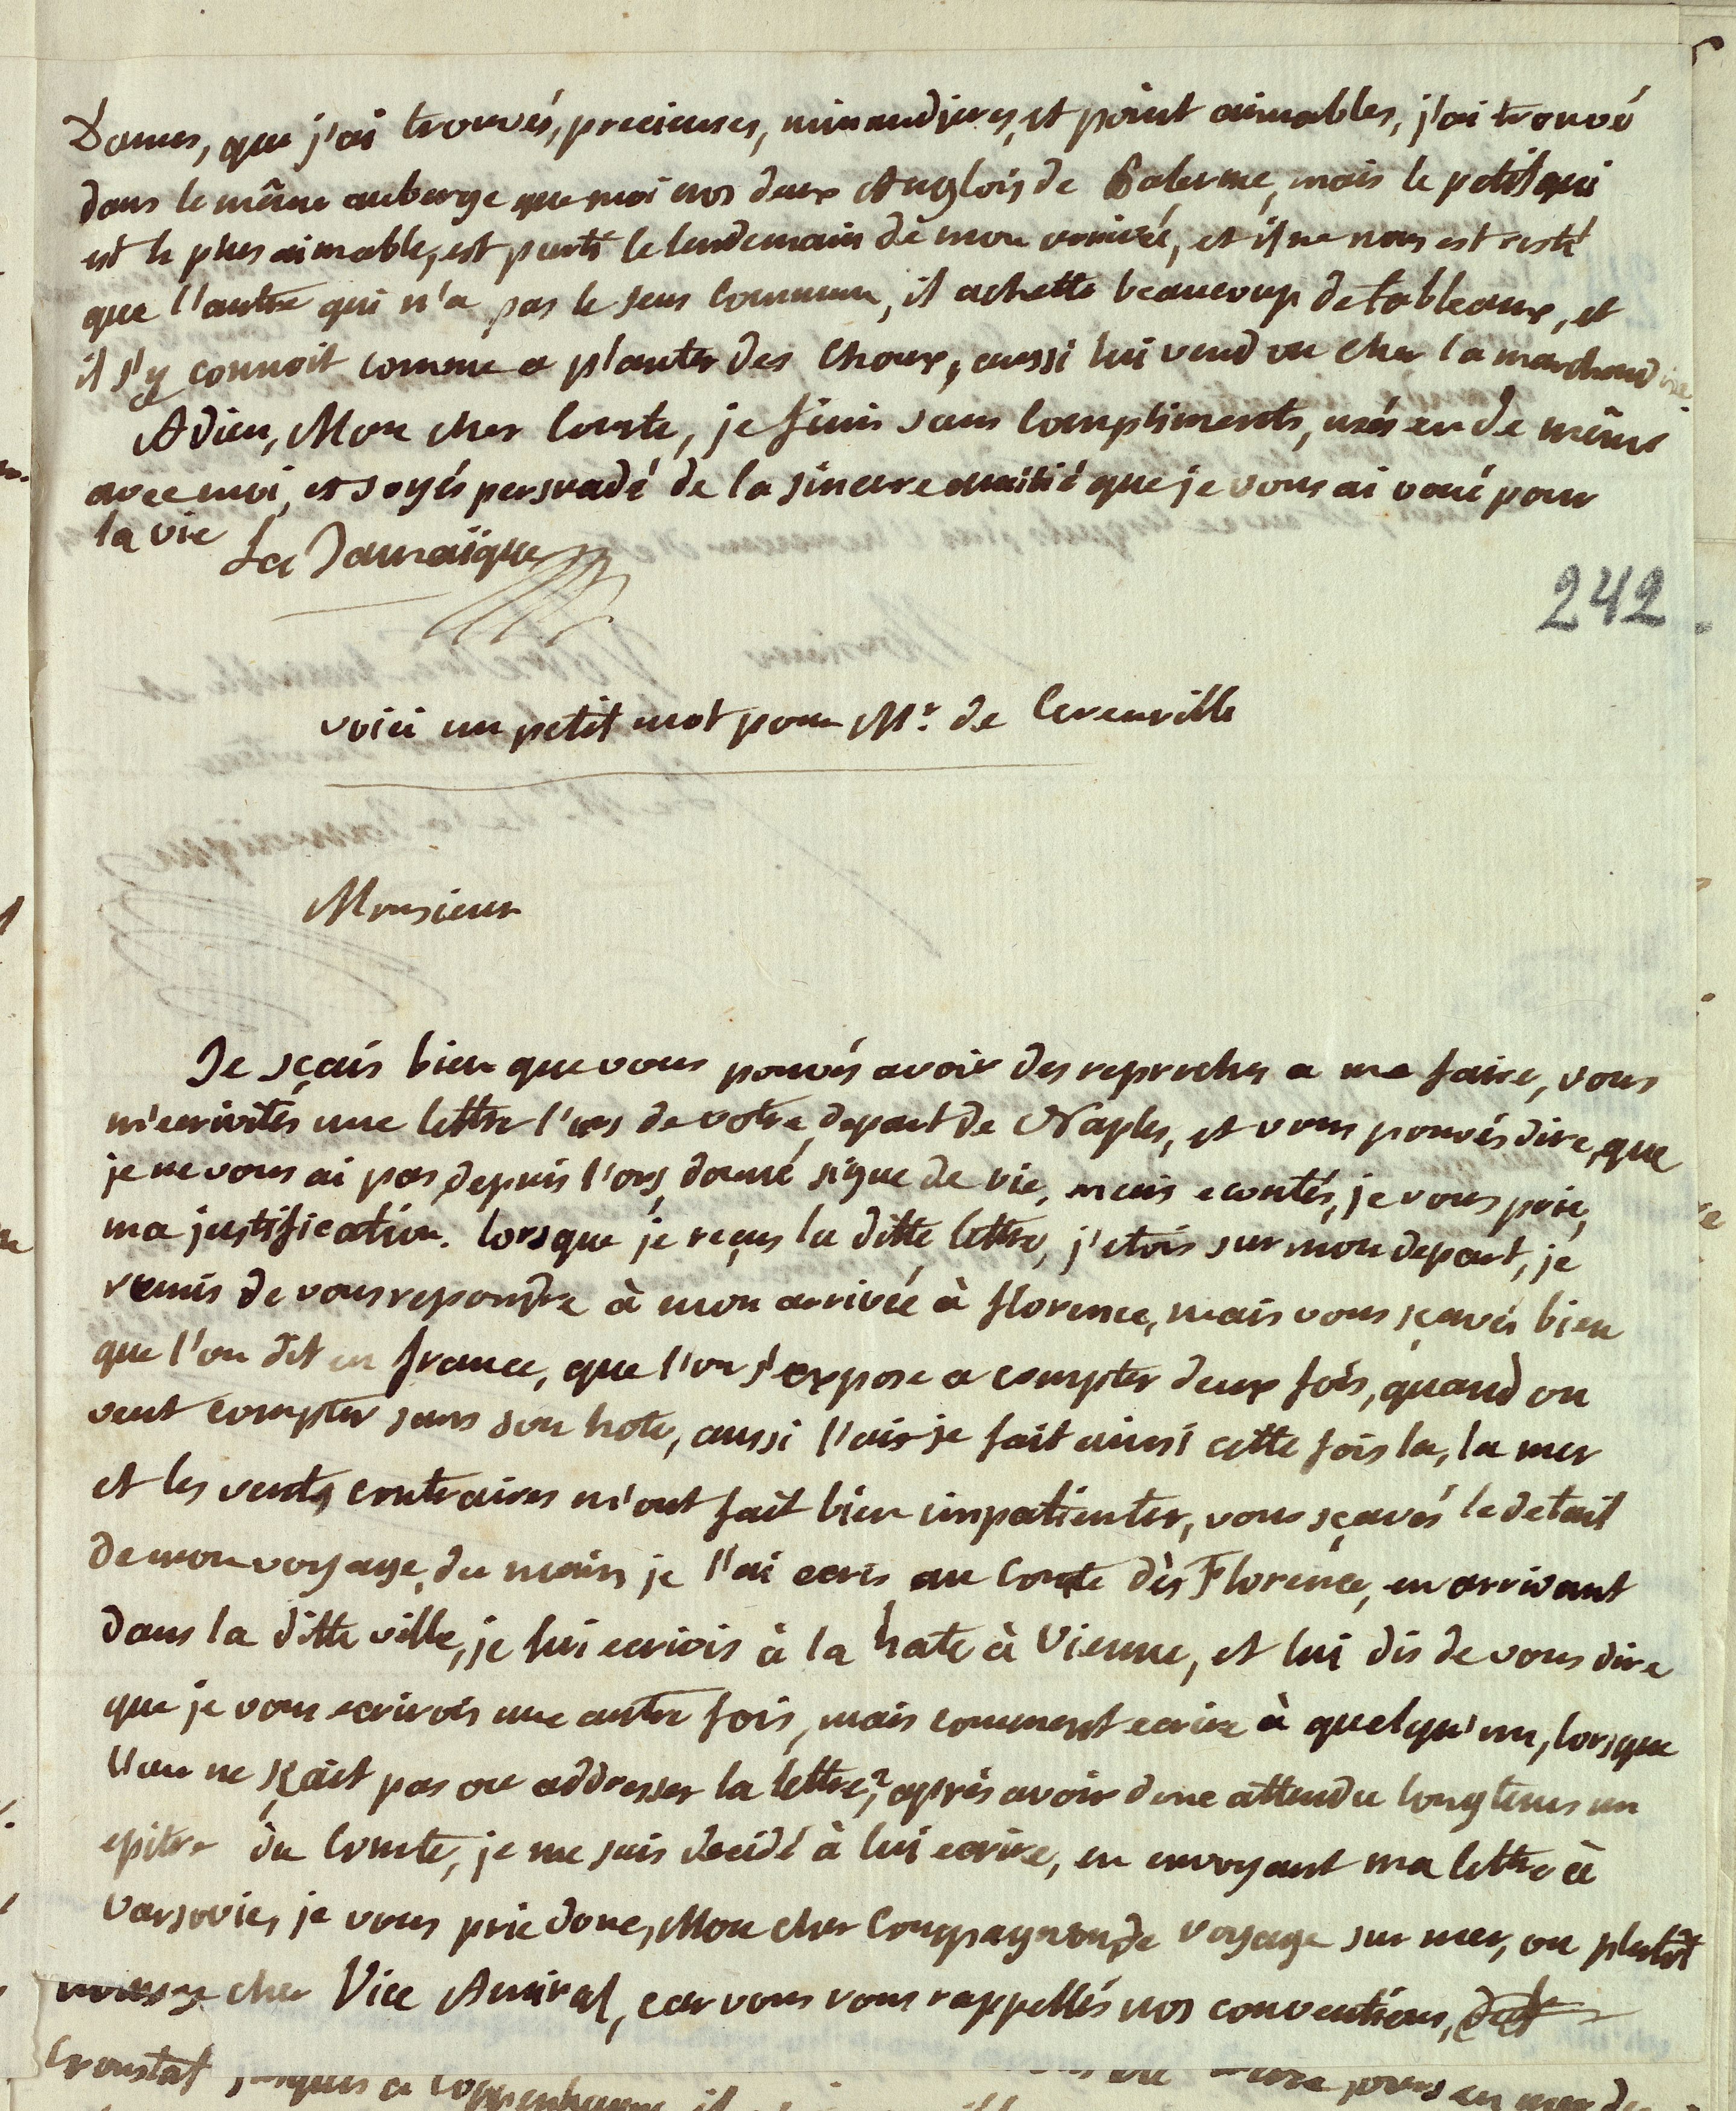 Dames, que j'ai trouvés, precieuses, minaudieres, et point aimables, j'ai trouvé
dans le même auberge que moi nos deux Anglois de Palerme, mais le petit qui
est le plus aimable, est parti le lendemain de mon arrivée, et il ne nous est resté
que l'autre qui n'a pas le sens commun, il achette beaucoup de tableaux, et
il s'y connoit comme a planter des choux, aussi lui vend on cher la marchandise
Adieu, Mon cher Comte, je finis sans compliments, usés en de même
avec moi, et soyés persuadé de la sincere amitié que je vous ai voué pour
la vie
La Jamaïque
242
voici un petit mot pour Mr. de Cerenville
Monsieur
Je sçais bien que vous pouvés avoir des reproches a me faire, vous
m'ecrivités une lettre l'ors de votre depart de Naples, et vous pouvés dire, que
je ne vous ai pas depuis l'ors donné signe de vie, mais ecoutés, je vous prie,
ma justification. lorsque je reçus la ditte lettre, j'etois sur mon depart, je
remis de vous repondre à mon arrivée à florence, mais vous sçavés bien
que l'on dit en france, que l'on s'expose a compter deux fois, quand on
veut compter sans son hote, aussi l'ais je fait ainsi cette fois la, la mer
et les vents contraires m'ont fait bien impatienter, vous sçavés le detail
de mon voyage, du moins je l'ai ecris au Comte dès Florence, en arrivant
dans la ditte ville, je lui ecrivis à la hate à Vienne, et lui dis de vous dire
que je vous ecrirois une autre fois, mais comment ecrire à quelqu'un, lorsque
l'on ne sçait pas ou addresser la lettre? après avoir donc attendu longtems un
epitre du Comte, je me suis decidé à lui ecrire, en envoyant ma lettre à
Varsovie, je vous prie donc, Mon cher Compagnon de voyage sur mer, ou plutôt
cher Vice Amiral, car vous vous rappellés nos conventions,
Cronstat jusques a Coppenhague il jours en mer de